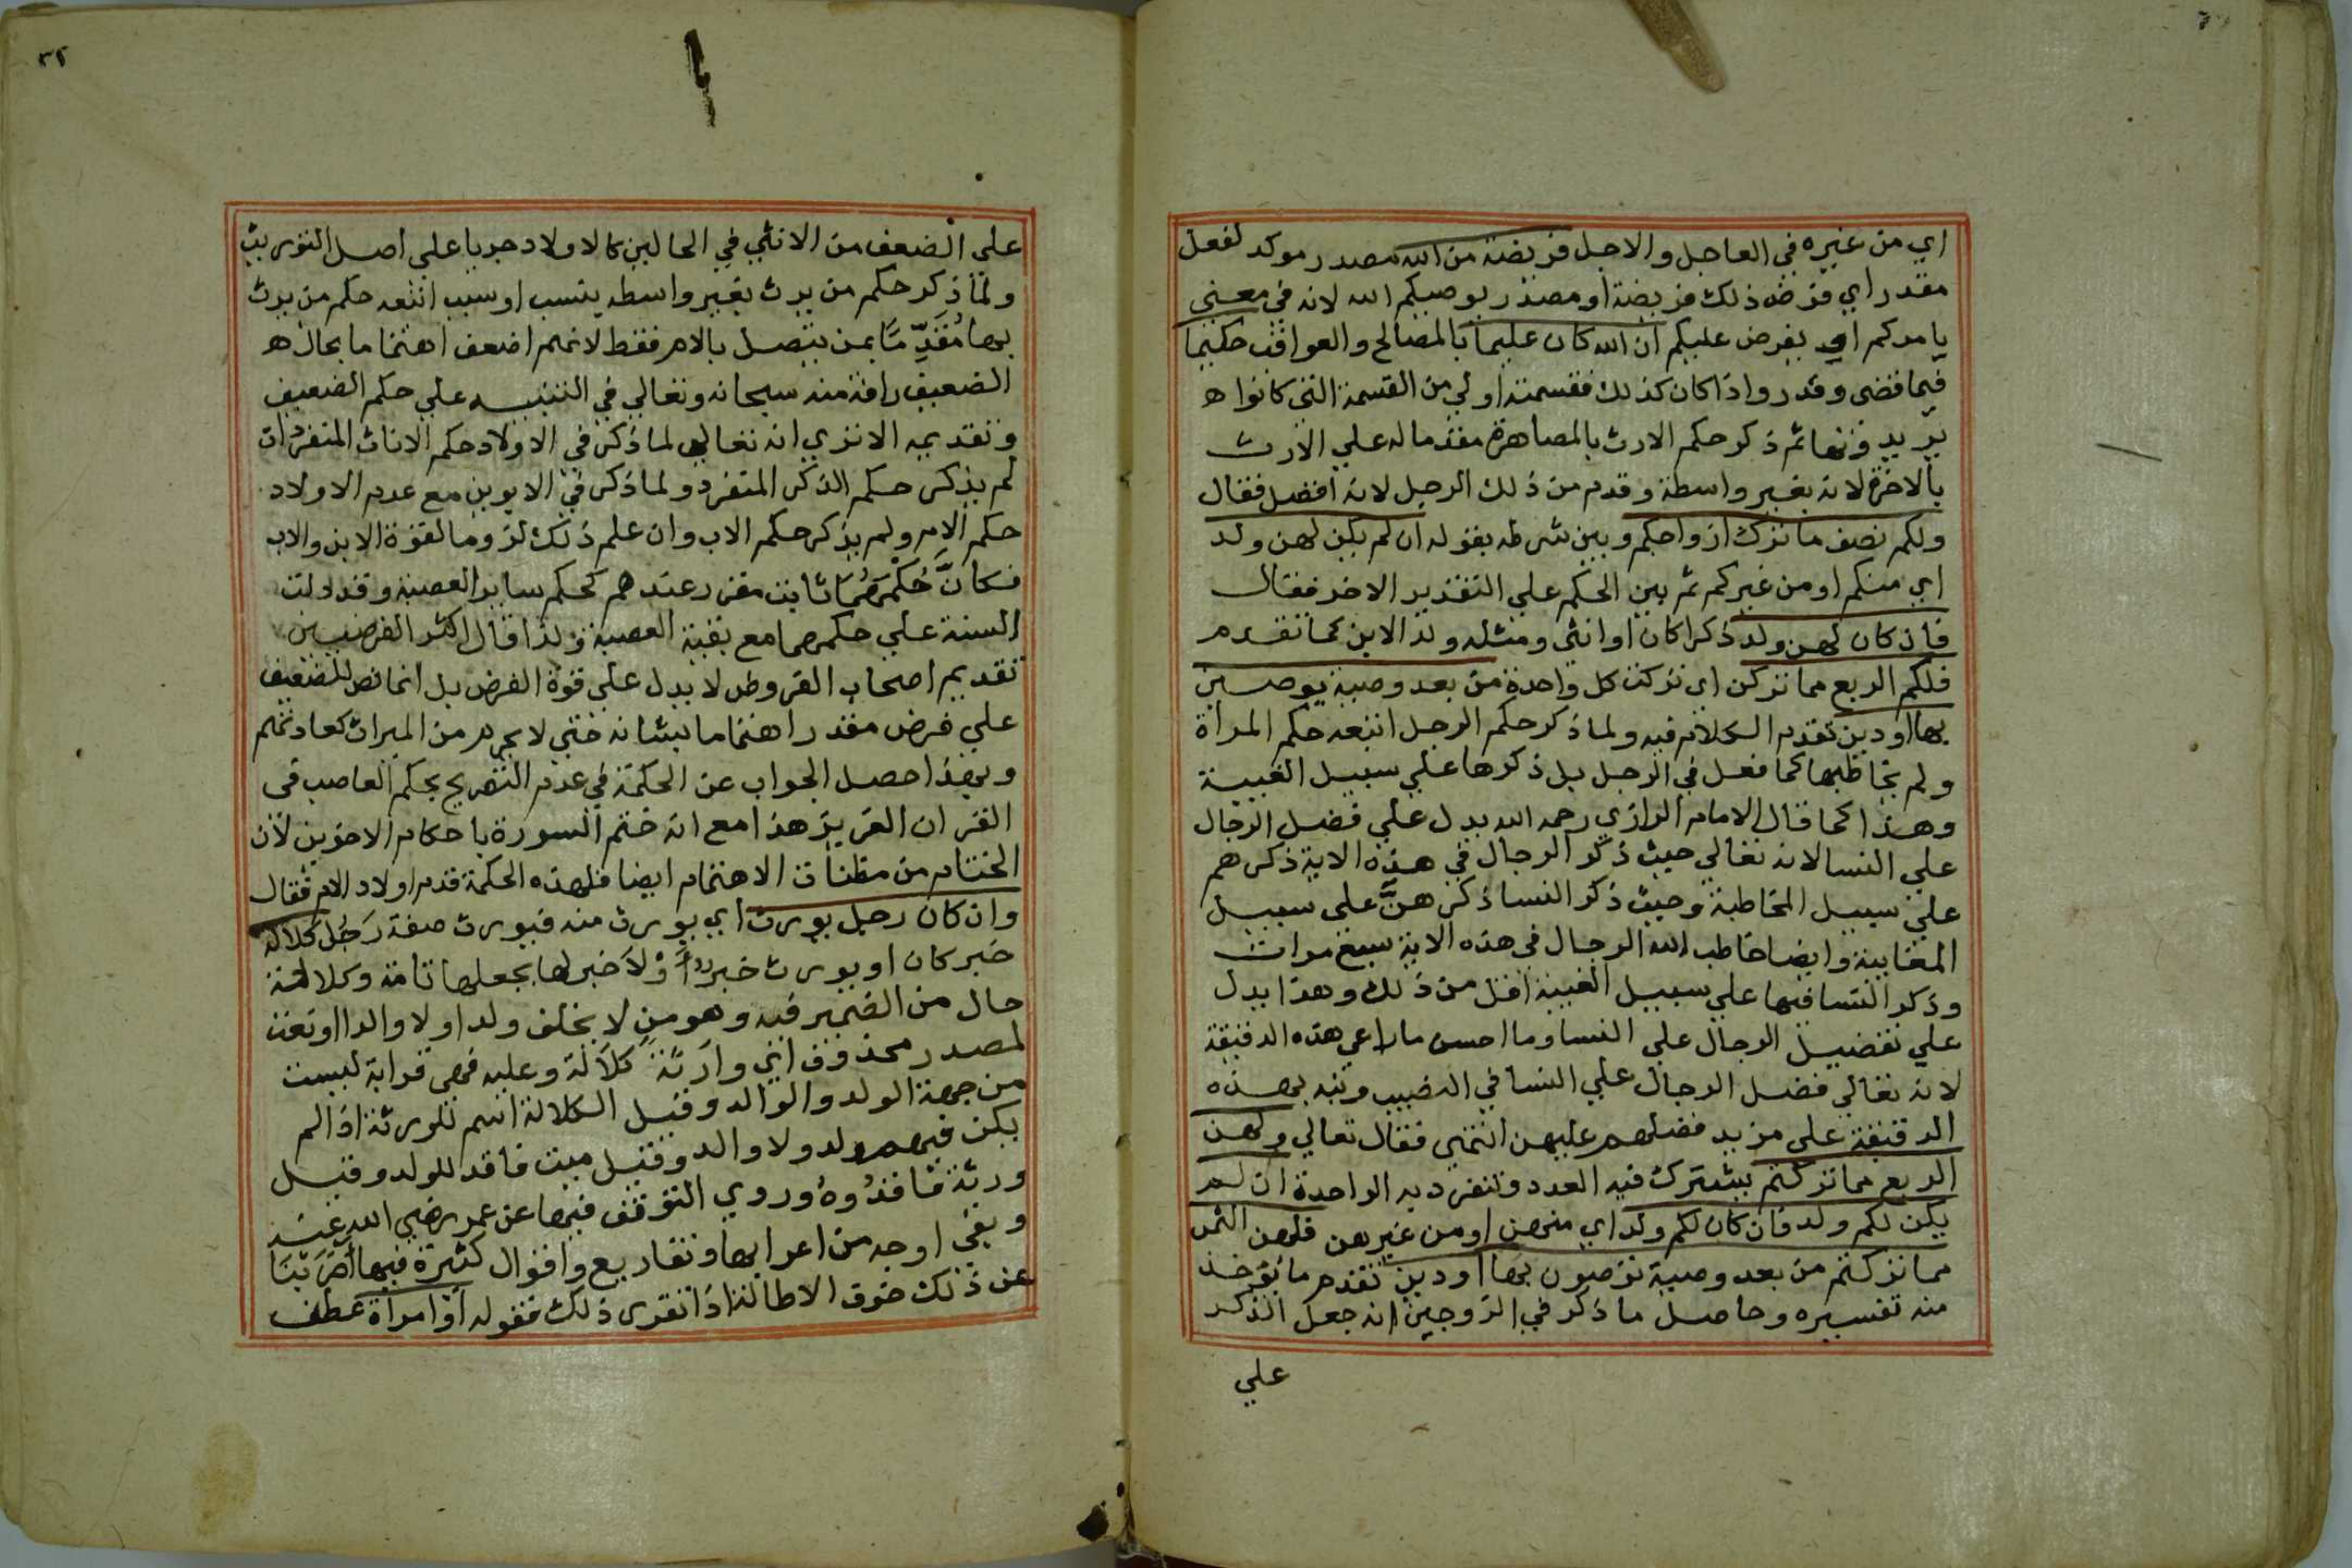 اي من غيره في العاجل والاجل فريضة من الله مصدر موكد لفعل
مقدر اي فرض ذلك فريضة او مصدر يوصيكم الله لانه في معني
يامركم اي يفرض عليكم ان الله كان عليما بالمصالح والعواقب حكيما
فيما قضى وقدر واذا كان كذلك فقسمته اولي من القسمة التي كانوا ه
يريدونها ثم ذكر حكم الارث بالمصاهرة مقدما له علي الارث
بالاخوة لانه بغير واسطة وقدم من ذلك الرجل لانه افضل فقال
ولكم نصف ما ترك ازواجكم وبين شرطه بقوله ان لم يكن لهن ولد
اي منكم او من غيركم ثم بين الحكم علي التقدير الاخر فقال
فان كان لهن ولد ذكرا كان او انثي ومثله ولد الابن كما تقدم
فلكم الربع مما تركن اي تركت كل واحدة من بعد وصية يوصين
بها او دين تقدم الكلام فيه ولما ذكر حكم الرجل اتبعه حكم المراة
ولم يخاطبها كما فعل في الرجل بل ذكرها علي سبيل الغيبة
وهذا كما قال الامام الرازي رحمه الله يدل علي فضل الرجال
علي النسا لانه تعالي حيث ذكر الرجال في هذه الاية ذكرهم
علي سبيل المخاطبة وحيث ذكر النسا ذكرهنَّ علي سبيل
المغايبة وايضا خاطب الله الرجال في هذه الاية سبع مرات
وذكر النسا فيها علي سبيل الغيبة اقل من ذلك وهذا يدل
علي تفضيل الرجال علي النسا وما احسن ما راعي هذه الدقيقة
لانه تعالي فضل الرجال علي النسا في النصيب ونبه بهذه
الدقيقة علي مزيد فضلهم عليهن انتهي فقال تعالي ولهن
الربع مما تركتم يشترك فيه العدد وتنفرد به الواحدة ان لم
يكن لكم ولد فان كان لكم ولد اي منهن او من غيرهن فلهن الثمن
مما تركتم من بعد وصية توصون بها او دين تقدم ما يؤخذ
منه تفسيره وحاصل ما ذكر في الزوجين انه جعل الذكر
علي
٣٢
علي الضعف من الانثي في الحالين كالاولاد جريا علي اصل التوريث
ولما ذكر حكم من يرث بغير واسطه بنسب او سبب اتبعه حكم من يرث
بها مُقَدِّمًا بمن يتصل بالام فقط لانهم اضعف اهتماما بحال ه
الضعيف رافة منه سبحانه وتعالي في التنبيه علي حكم الضعيف
وتقديمه الا تري انه تعالي لما ذكر في الاولاد حكم الاناث المنفردات
لم يذكر حكم الذكر المنفرد ولما ذكر في الابوين مع عدم الاولاد
حكم الام ولم يذكر حكم الاب وان علم ذلك لزوما لقوة الابن والاب
فكانَّ حُكْمَهُمَا ثابت مقرر عندهم كحكم ساير العصبة وقد دلت
السنة علي حكمهما مع بقية العصبة ولذا قال اكثر الفرضيين
تقديم اصحاب الفروض لا يدل علي قوة الفرض بل انما نص للضعيف
علي فرض مقدر اهتماما بشانه حتي لا يحرم من الميراث كعادتهم
وبهذا حصل الجواب عن الحكمة في عدم التصريح بحكم العاصب في
القران العزيز هذا مع انه ختم السورة باحكام الاخوين لان
الختام من مظنات الاهتمام ايضا فلهذه الحكمة قدم اولاد الام فقال
وان كان رجل يورث اي يورث منه فيورث صفة رَجُل كلالة
خبر كان او يورث خبر وَلاَ خبر لها بجعلها تامة وكلالة
حال من الضمير فيه وهو من لا يخلف ولدا ولا والدا او نعت
لمصدر محذوف اي وارثة كلالة وعليه فهي قرابة ليست
من جهة الولد والوالد وقيل الكلالة اسم للورثة اذا لم
يكن فيهم ولد ولا والد وقيل ميت فاقد للولد وقيل
ورثة فاقدُوهُ وروي التوقف فيها عن عمر رضي الله عنه
وبقي اوجه من اعرابها وتفاريع واقوال كثيرة فيها اضرَبْنَا
عن ذلك خوف الاطالة اذا تقرر ذلك فقوله او امراة عطف